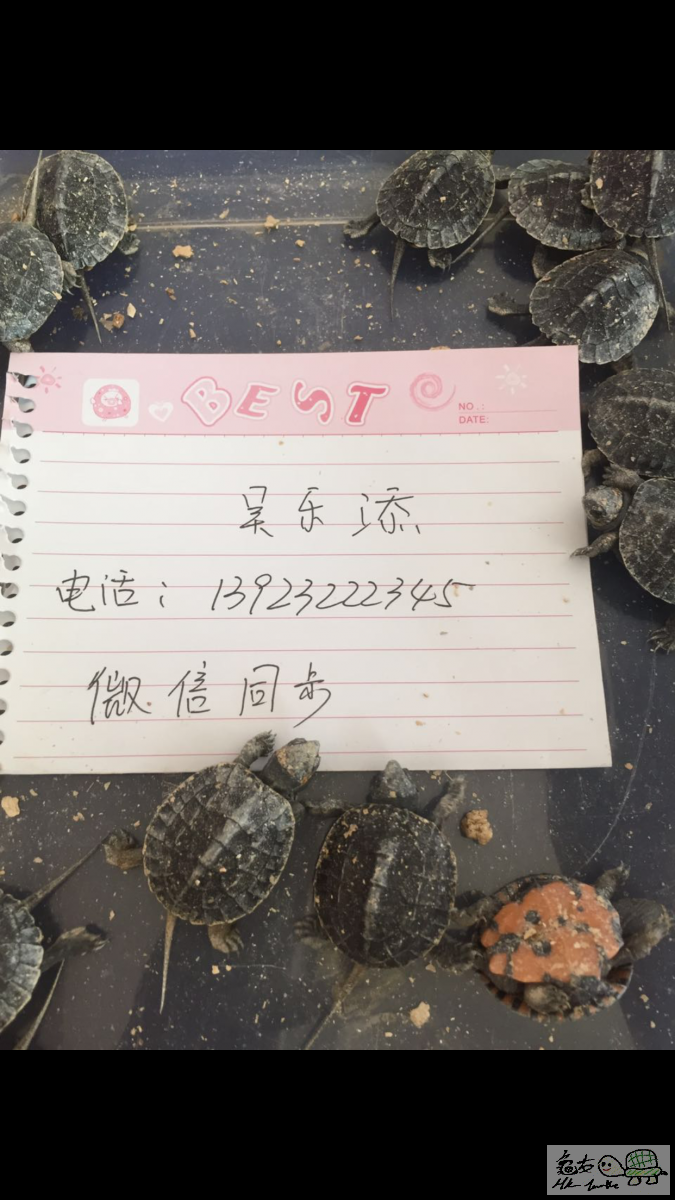 BEST
NO.:
DATE:
吴乐添
电话: 13923222345
微信同步
龟友